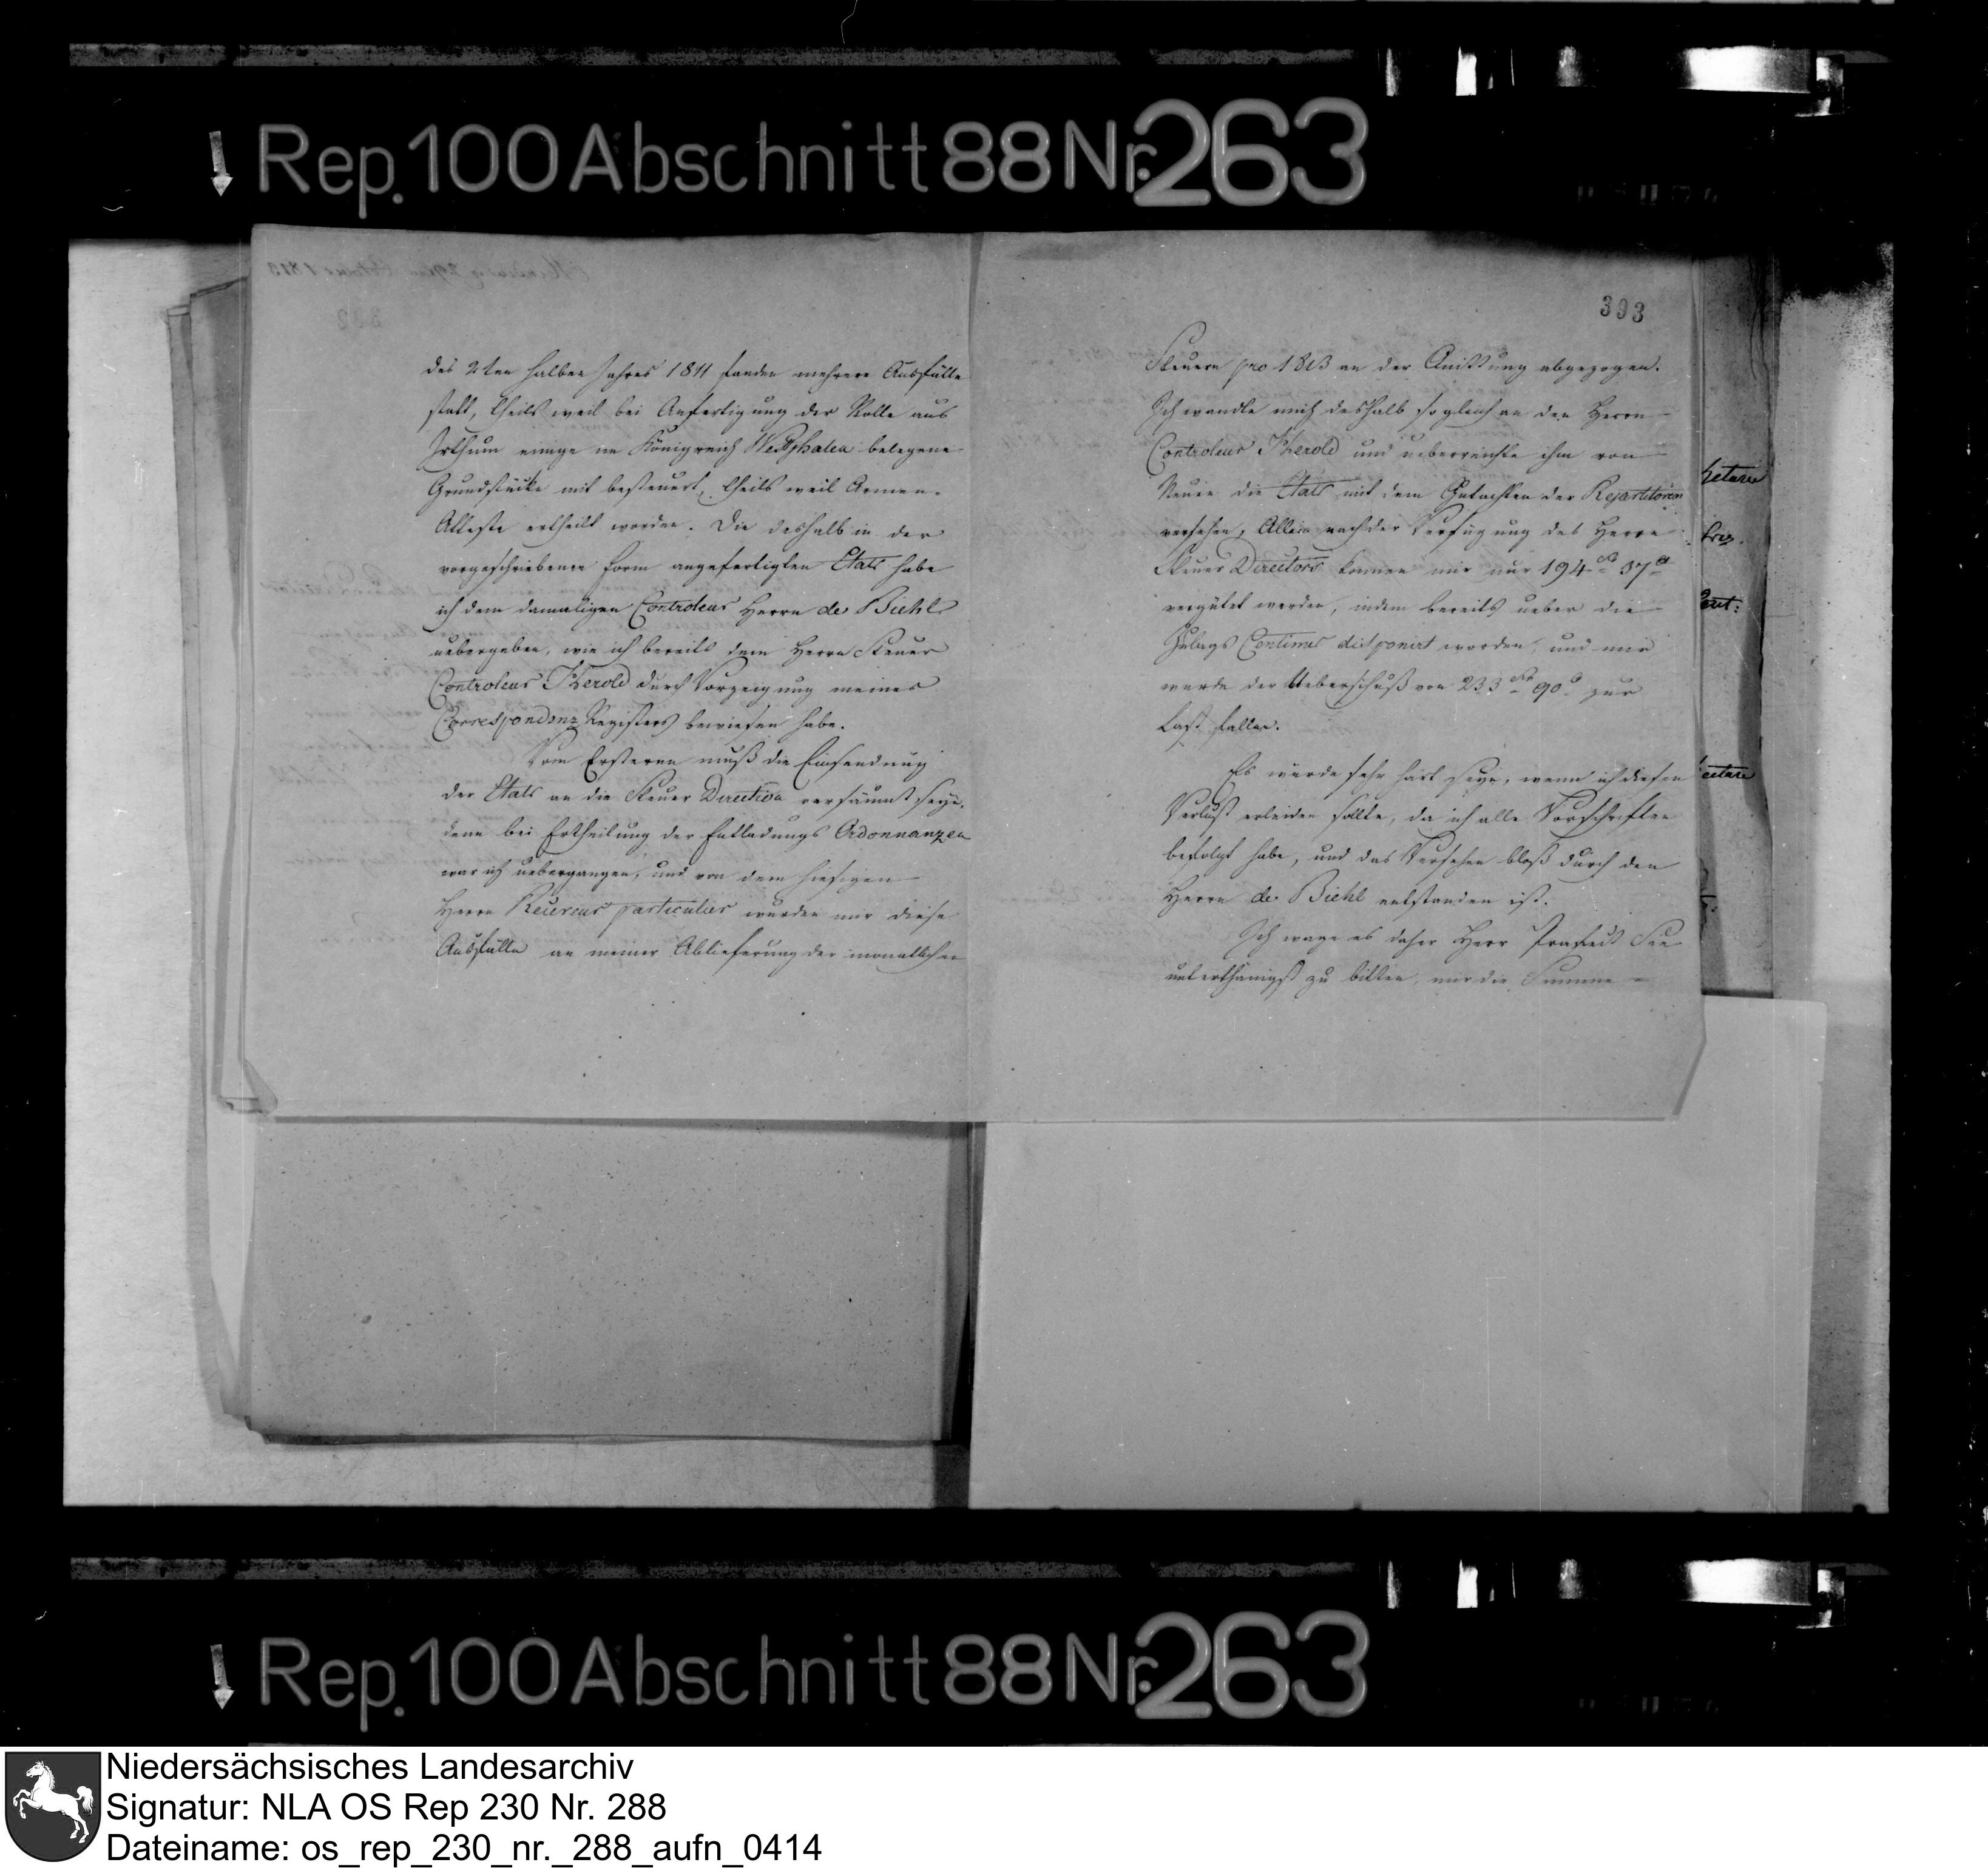 Rep. 100 Abschnitt 88 Nr. 263
des 2ten halben Jahres 1811 fanden mehrere Ausfälle
statt, theils weil bei Anfertigung der Rolle aus
Irthum einige im Königreich Westphalen belegene
Grundstücke mit besteuert, theils weil Armen-
Atteste ertheilt worden. Die deshalb in der
vorgeschriebenen Form angefertigten Etats habe
ich dem damaligen Controleur Herrn de Biehl
uebergeben, wie ich bereits dem Herrn Steuer
Controleur Therold durch Vorzeigung meines
Correspondenz Registers bewiesen habe.
Vom Ersteren muß die Einsendung
der Etats an die Steuer Direction versäumt seyn,
denn bei Ertheilung der Entladungs Ordonnanzen
war ich uebergangen, und von dem hiesigen
Herrn Receveur particulier wurden mir diese
Ausfälle an meiner Ablieferung der monatlichen
393
Steuern pro 1813 an der Quittung abgezogen.
Ich wandte mich deshalb sogleich an den Herrn
Controleur Therold und ueberreichte ihm von
Neuen die Etats mit dem Gutachten der Repartitoren
versehen, Allein nach der Verfügung des Herrn
Steuer Directors können mir nur 194 37
vergütet werden, indem bereits ueber die
Zulags Centimes disponirt worden, und mir
wurde der Ueberschuß von 233 90 zur
Last fallen.
Es würde sehr hart seyn, wenn ich diesen
Verlust erleiden sollte, da ich alle Vorschriften
befolgt habe, und das Versehen bloß durch den
Herrn de Biehl entstanden ist.
Ich wage es daher Herr Praefect Sie
unterthänigst zu bitten, mir die Summe
Rep. 100 Abschnitt 88 Nr. 263
Niedersächsisches Landesarchiv
Signatur: NLA OS Rep 230 Nr. 288
Dateiname: os_rep_230_nr._288_aufn_0414